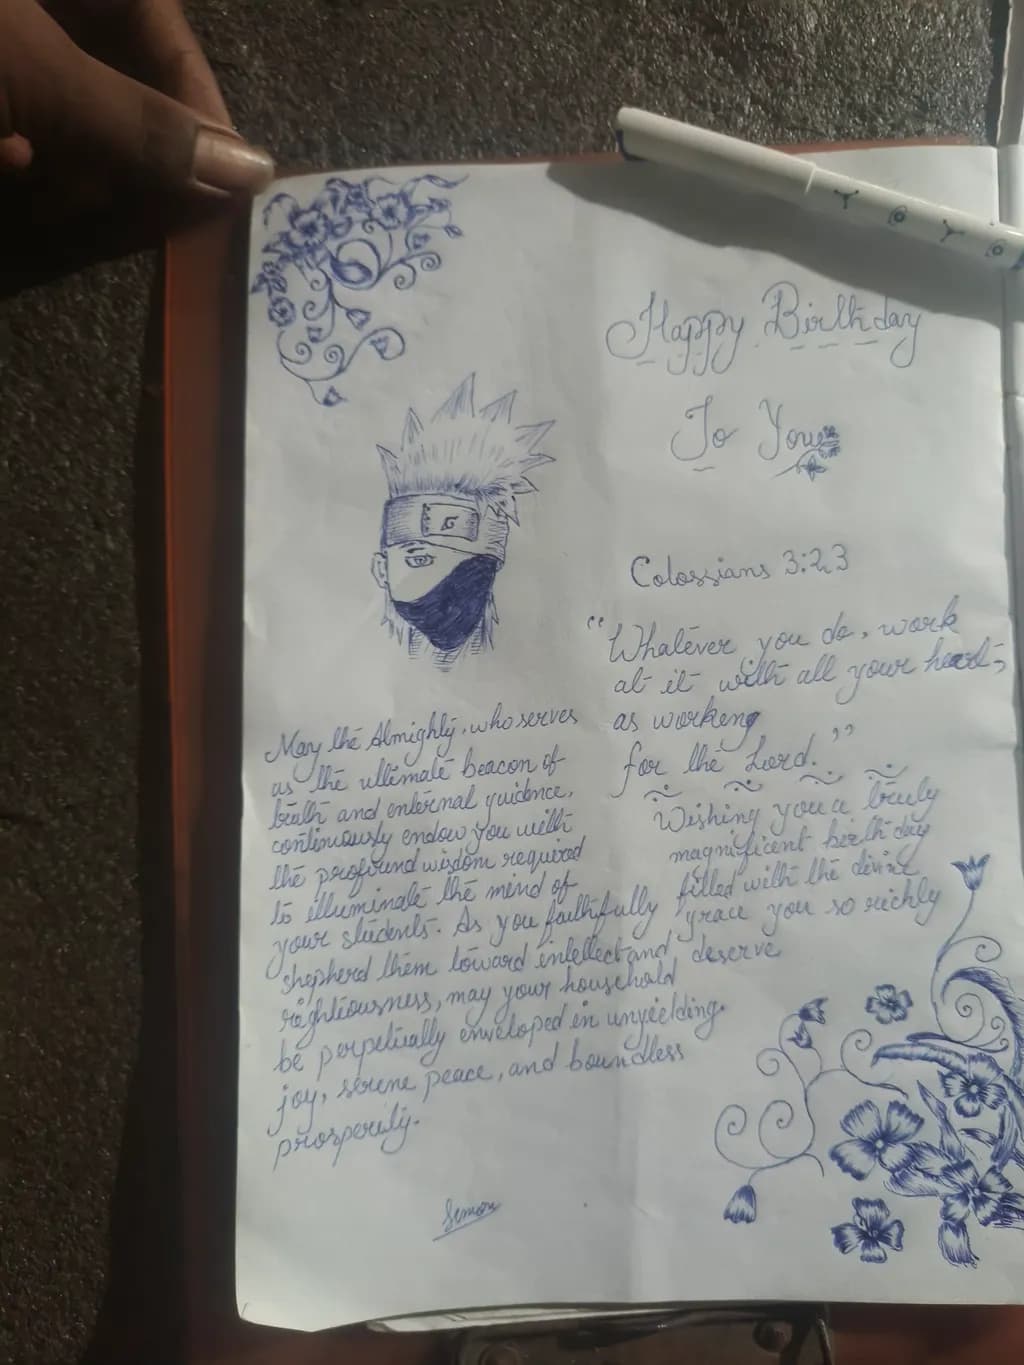 Happy Birthday
To You
Colossians 3:2,3
"Whatever you do, work
at it with all your heart,
as working
for the Lord."
Wishing you a truly
magnificent birthday
filled with the divine
grace you so richly
deserve
May the Almighty, who serves
as the ultimate beacon of
truth and enternal guidence,
continuously endow you with
the profound wisdom required
to illuminate the mind of
your students. As you faithfully
shepherd them toward intellect and
righteousness, may your household
be perpetually enveloped in unyielding
joy, serene peace, and boundless
prosperity.